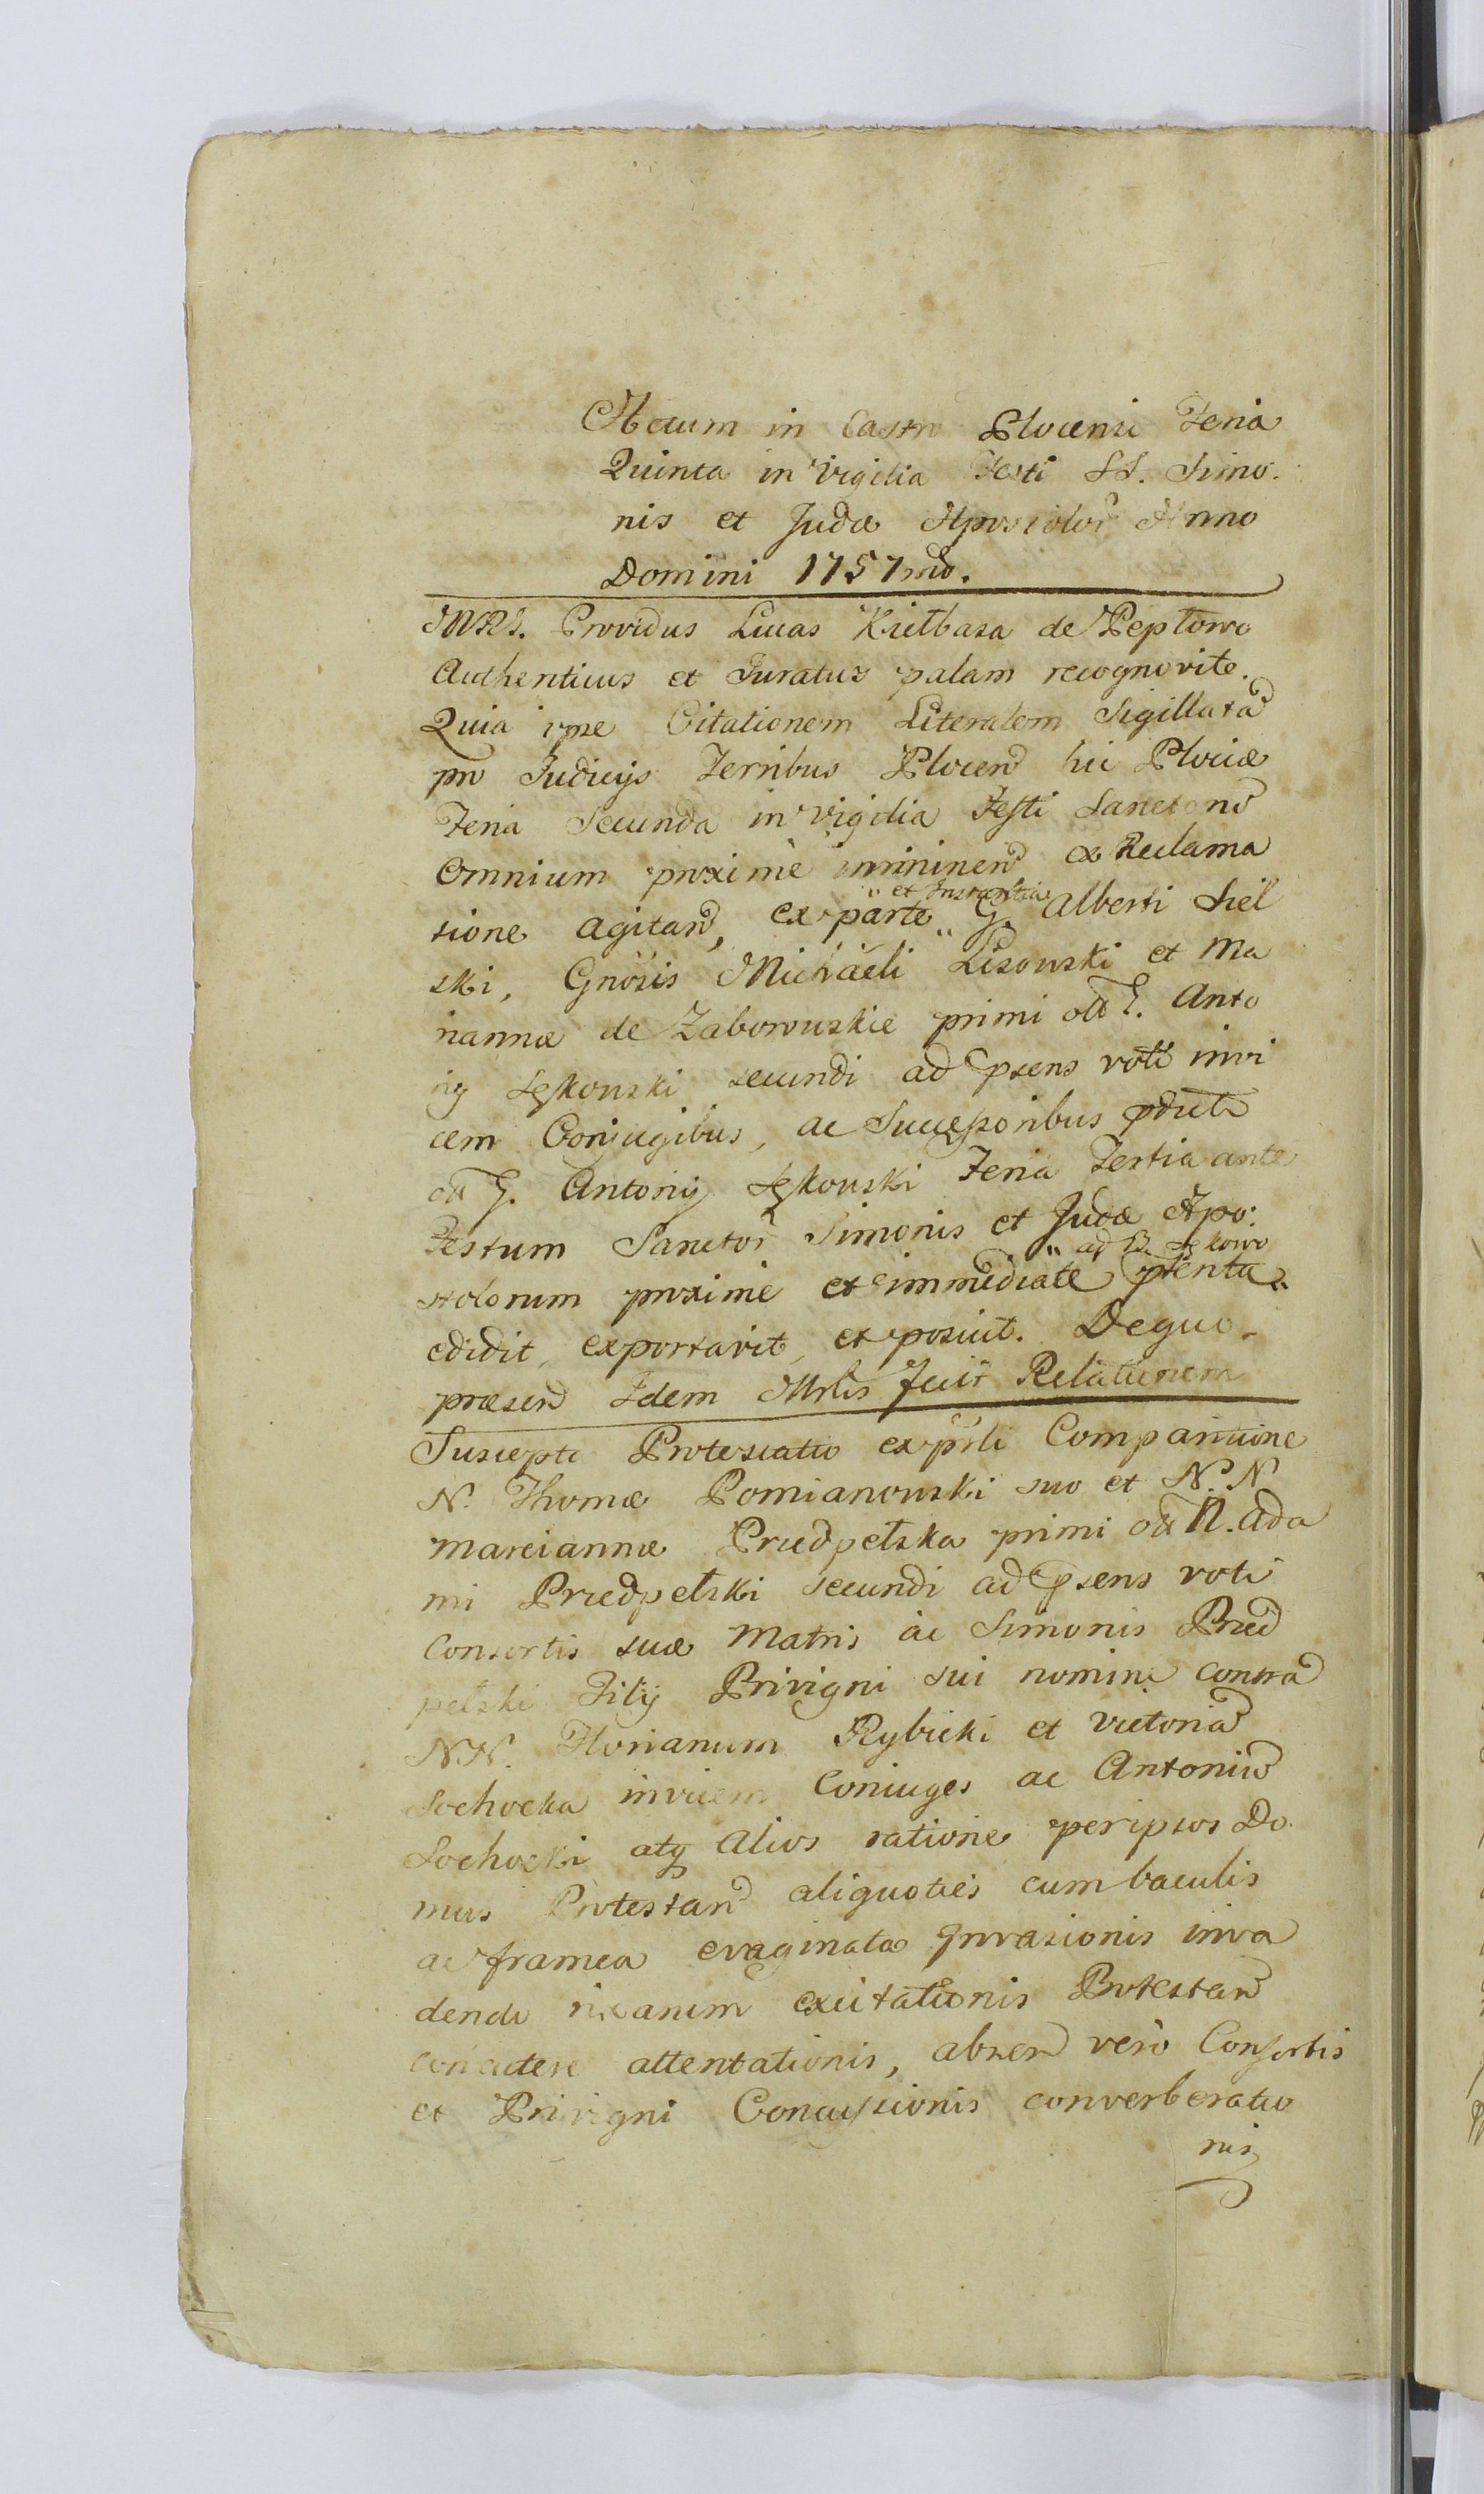 Actum in Castro Plocensi Feria
Quinta in Vigilia Festi SS. Simo:
nis et Judæ Apostolor Anno
Domini 1757mo.
MRLS. Providus Lucas Kiełbasa de Peptowo
Authenticus et Juratus palam recognovit.
Quia ipse Citationem Literalem Sigillatã
pro Judicijs Terribus Plocen hic Plociæ
Feria Secunda in Vigilia Festi Sanctorũ
Omnium proximè imminen ex Reclama
tione agitan, ex parte „ et Instantia „ G. Alberti Siel
ski, Gnosis Michaeli Lisowski et Ma
riannæ de Zaborowskie primi olĩ G. Anto
nij Sękowski secundi ad psens voti invi
cem Conjugibus, ac Successoribus pdicti
olĩ G. Antonij Sękowski Feria Tertia ante
Festum Sanctor Simonis et Judæ Apo:
stolorum proximè et immediatè pterita „ ad B. Sękowo „
edidit, exportavit, et posuit. De quo
præsen Idem Mrlis fecit Relationem
Suscepta Protestatio ex psli Comparitione
N. Thomæ Pomianowski suo et N.N
Marciannæ Przedpełska primi olĩ N. Ada
mi Przedpełski secundi ad psens voti
Consortis suæ Matris ac Simonis Przed
pełski Filij Privigni sui nomine contra
NN. Florianum Rybicki et Victoriã
Sochocka invicem Coniuges ac Antoniũ
Sochocki atq Alios ratione per ipsos Do
mus Protestan aliquoties cum baculis
ac framea evaginata Invasionis inva
dendo rixarum excitationis Protestan
concutere attentationis, absen verò Consortis
et Privigni Concussionis converberatio
nis